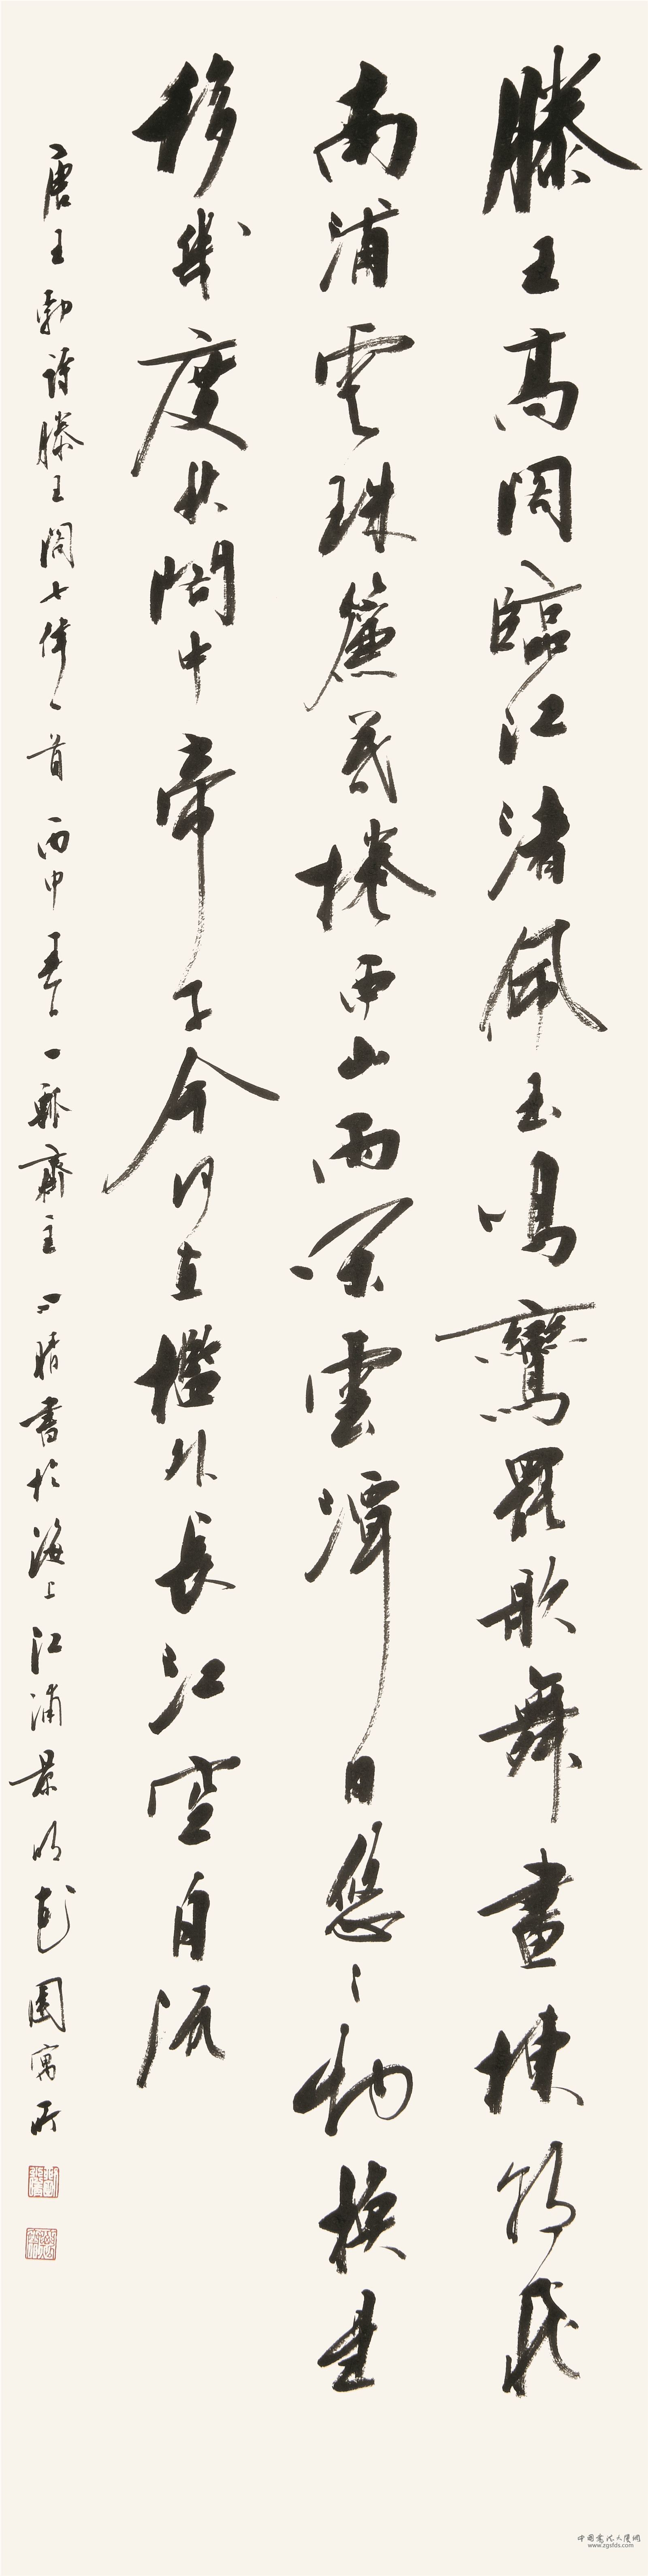 滕王高閣臨江渚佩玉鳴鸞罷歌舞畫棟朝飛
南浦雲珠簾暮捲西山雨閑雲潭日悠々物換星
移幾度秋閣中帝子今何在檻外長江空自流
唐王勃詩滕王閣七律一首丙申春一齋主晴書於海上江浦景明花園寓所
www.zgsfds.com